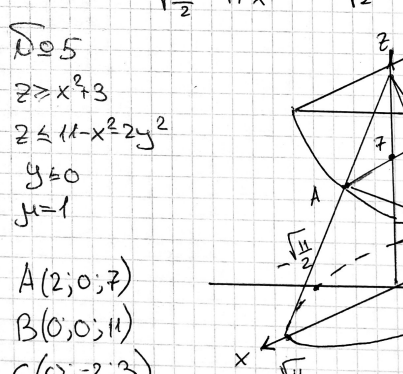 №5
z ≥ x²+3
z ≤ 11-x²-2y²
y ≤ 0
μ=1
A(2;0;7)
B(0;0;11)
z
7
A
-√11/2
x